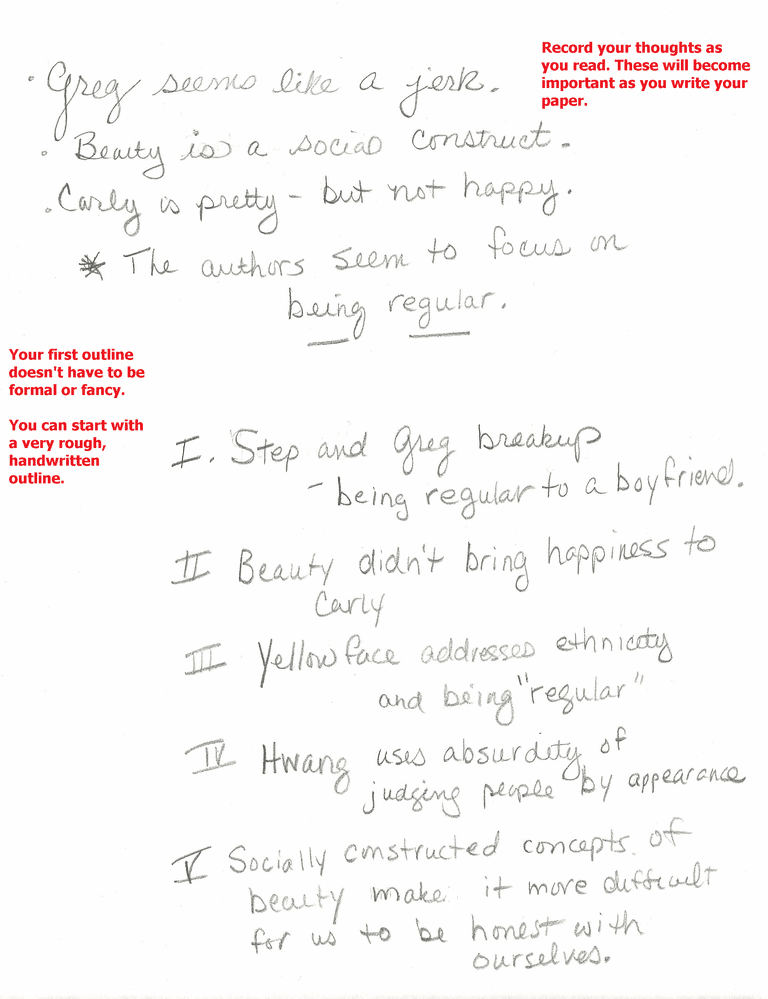 Record your thoughts as
you read. These will become
important as you write your
paper.
• Greg seems like a jerk.
• Beauty is a social construct.
• Carly is pretty - but not happy.
* The authors seem to focus on
being regular.
Your first outline
doesn't have to be
formal or fancy.
You can start with
a very rough,
handwritten
outline.
I. Step and Greg breakup
- being regular to a boyfriend.
II Beauty didn't bring happiness to
Carly
III Yellow face addresses ethnicity
and being "regular"
IV Hwang uses absurdity of
judging people by appearance
V Socially constructed concepts of
beauty make it more difficult
for us to be honest with
ourselves.